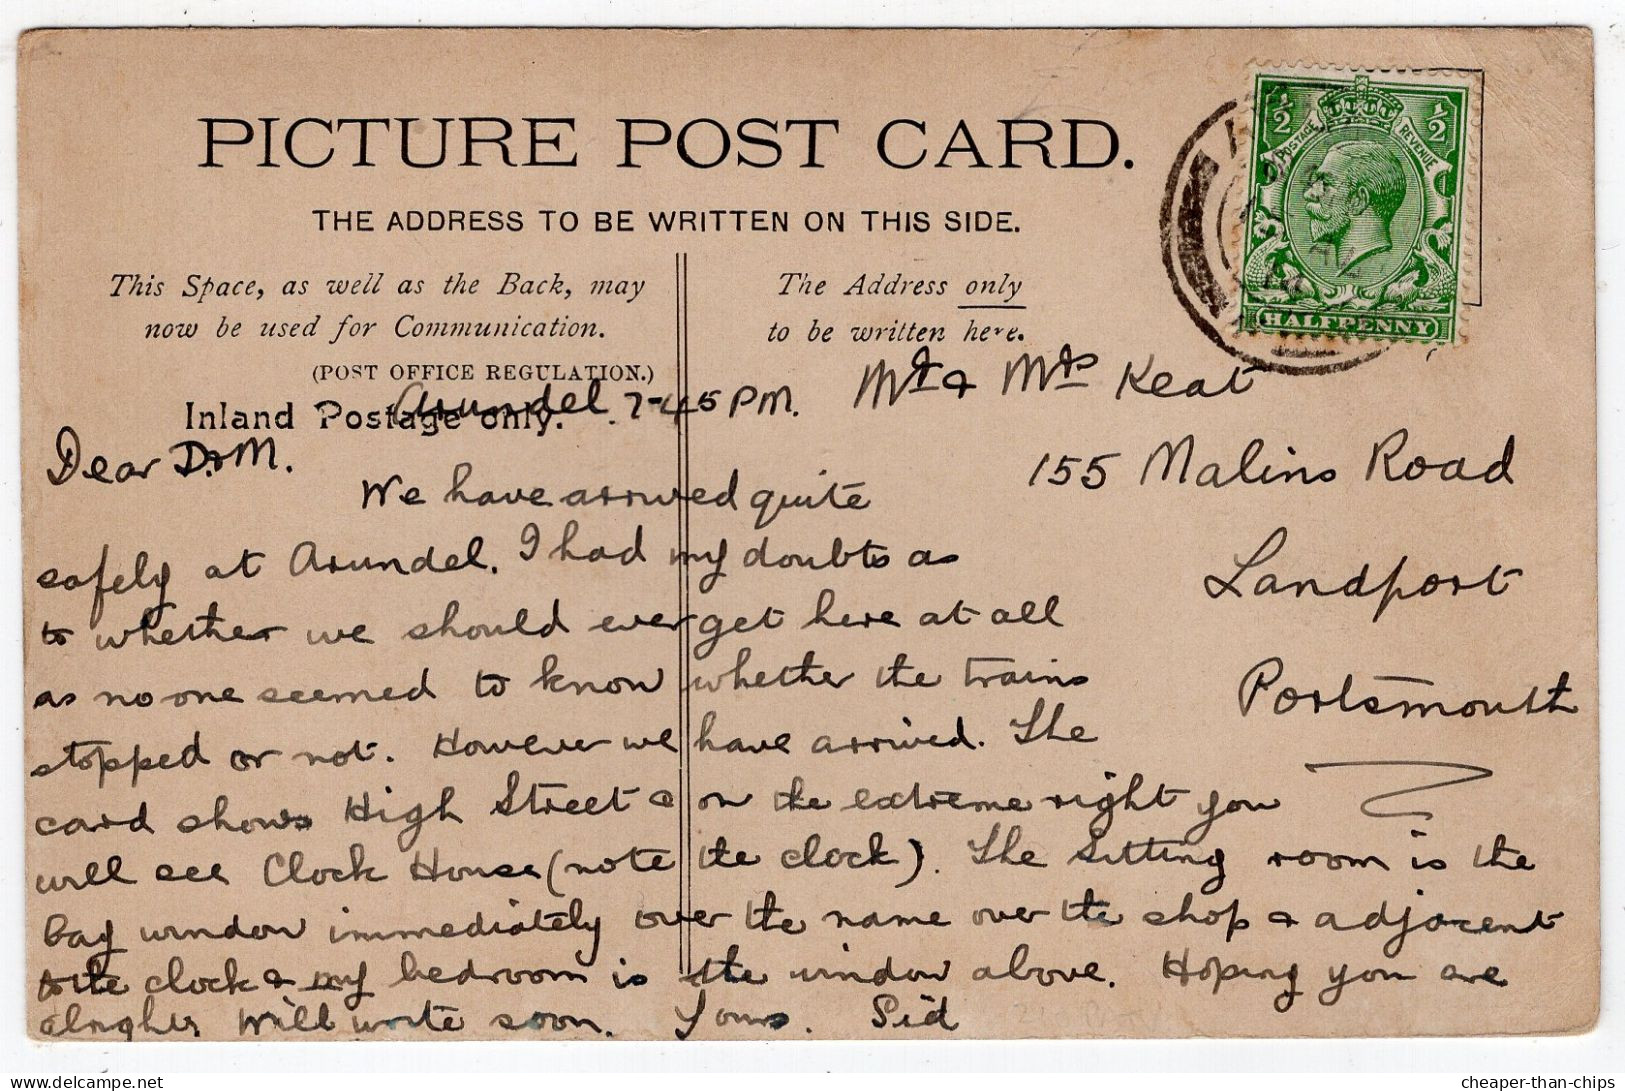 PICTURE POST CARD.
THE ADDRESS TO BE WRITTEN ON THIS SIDE.
This Space, as well as the Back, may
now be used for Communication.
(POST OFFICE REGULATION.)
Inland Postage only.
The Address only
to be written here.
½ ½
POSTAGE REVENUE
HALFPENNY
Mr & Mrs Keat
155 Malins Road
Landport
Portsmouth
Arundel. 7-45 PM.
Dear D. & M.
We have arrived quite
safely at Arundel. I had my doubts as
to whether we should ever get here at all
as no one seemed to know whether the trains
stopped or not. However we have arrived. The
card shows High Street & on the extreme right you
will see Clock House (note the clock). The sitting room is the
bay window immediately over the name over the shop & adjacent
to the clock & my bedroom is the window above. Hoping you are
alright. Will write soon. Yours. Sid
cheaper-than-chips